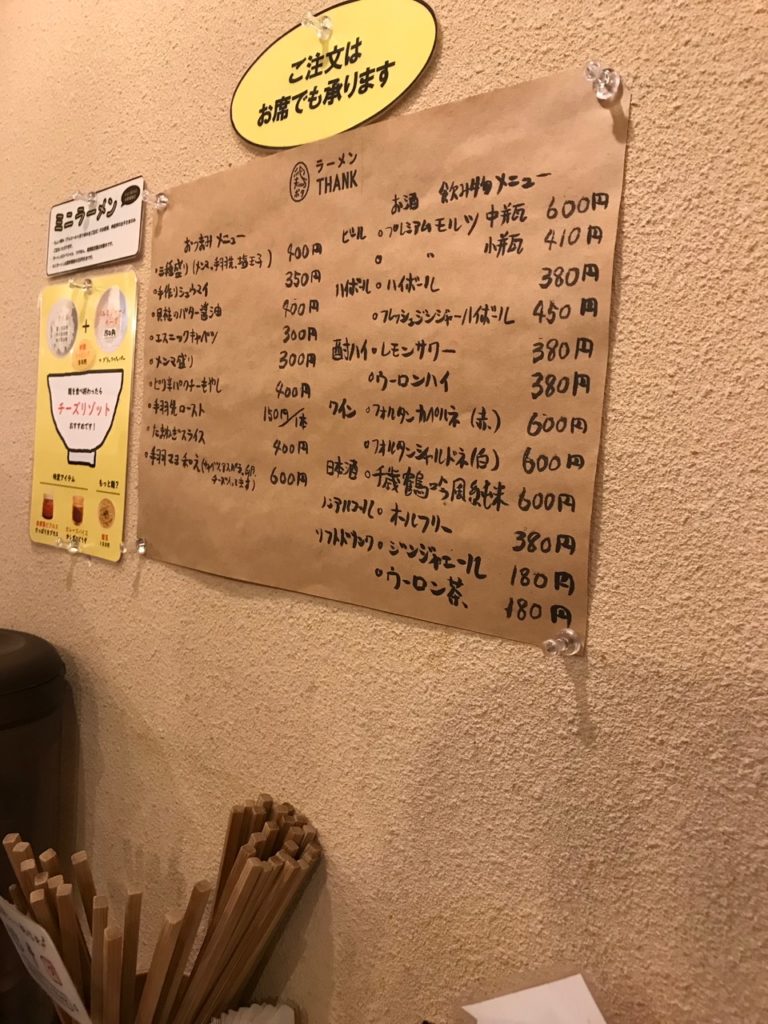 ご注文は
お席でも承ります
ラーメン
THANK
おつまみ メニュー
・三種盛り(メンマ、手羽先、塩玉子) 400円
・手作りシュウマイ 350円
バター醤油 400円
・エスニックキャベツ 300円
・メンマ盛り 300円
・ピリ辛パクチーもやし 400円
・手羽先ロースト 150円/1本
・たまねぎスライス 400円
・手羽マヨ和え 600円
お酒 飲み物メニュー
ビール ・プレミアムモルツ 中瓶 600円
・ 〃 小瓶 410円
ハイボール ・ハイボール 380円
・フレッシュジンジャーハイボール 450円
酎ハイ ・レモンサワー 380円
・ウーロンハイ 380円
ワイン ・フォルタン カベルネ(赤) 600円
・フォルタン シャルドネ(白) 600円
日本酒 ・千歳鶴 吟風純米 600円
ノンアルコール ・オールフリー 380円
ソフトドリンク ・ジンジャエール 180円
・ウーロン茶 180円
ミニラーメン
+
麺を食べ終わったら
チーズリゾット
おすすめです!
味変アイテム
もっと麺?